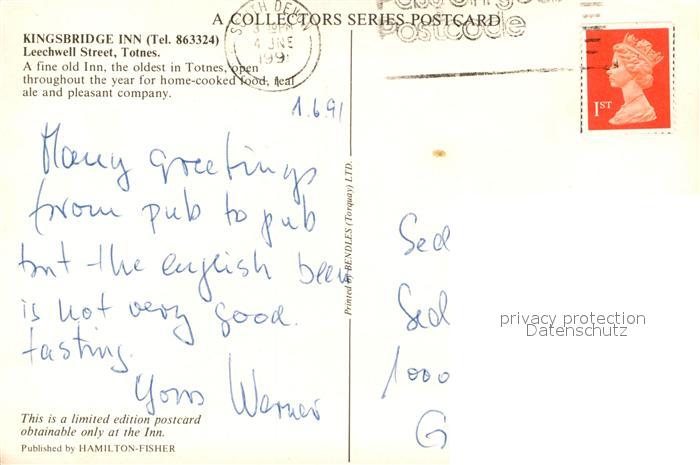 A COLLECTORS SERIES POSTCARD
KINGSBRIDGE INN (Tel. 863324)
Leechwell Street, Totnes.
A fine old Inn, the oldest in Totnes, open
throughout the year for home-cooked food, real
ale and pleasant company.
SOUTH DEVON
4 JNE
199
postcode
1ST
1.6.91
Many greetings
from pub to pub
but the english beer
is not very good
tasting.
Yours Werner
This is a limited edition postcard
obtainable only at the Inn.
Published by HAMILTON-FISHER
Printed by BENDLES (Torquay) LTD.
Sed
Sed
1000
G
privacy protection
Datenschutz